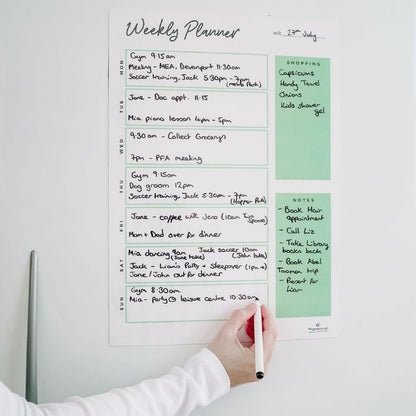 Weekly Planner
W/C 27th July
MON
Gym 9.15am
Meeting - MEA, Devonport 11.30am
Soccer training, Jack 5.30pm - 7pm
TUE
Jane - Doc appt. 11.15
Mia piano lesson 4pm - 5pm
WED
9.30am - Collect Grocerys
7pm - PFA meeting
THU
Gym 9.15am
Dog groom 12pm
Soccer training, Jack 5.30pm - 7pm
FRI
Jane - coffee with Jeno (10am Two
Spoons)
Mum + Dad over for dinner
SAT
Mia dancing 9am Jack soccer 10am
(Jane take) (John take)
Jack - Liam's Party + sleepover (1pm→)
Jane/John out for dinner
SUN
Gym 8.30am
Mia - party @ leisure centre 10.30am
SHOPPING
Capsicums
Handy Towel
Onions
Kids shower
gel
NOTES
- Book Hair
appointment
- Call Liz
- Take Library
books back
- Book Abel
Tasman trip
- Present for
Liam